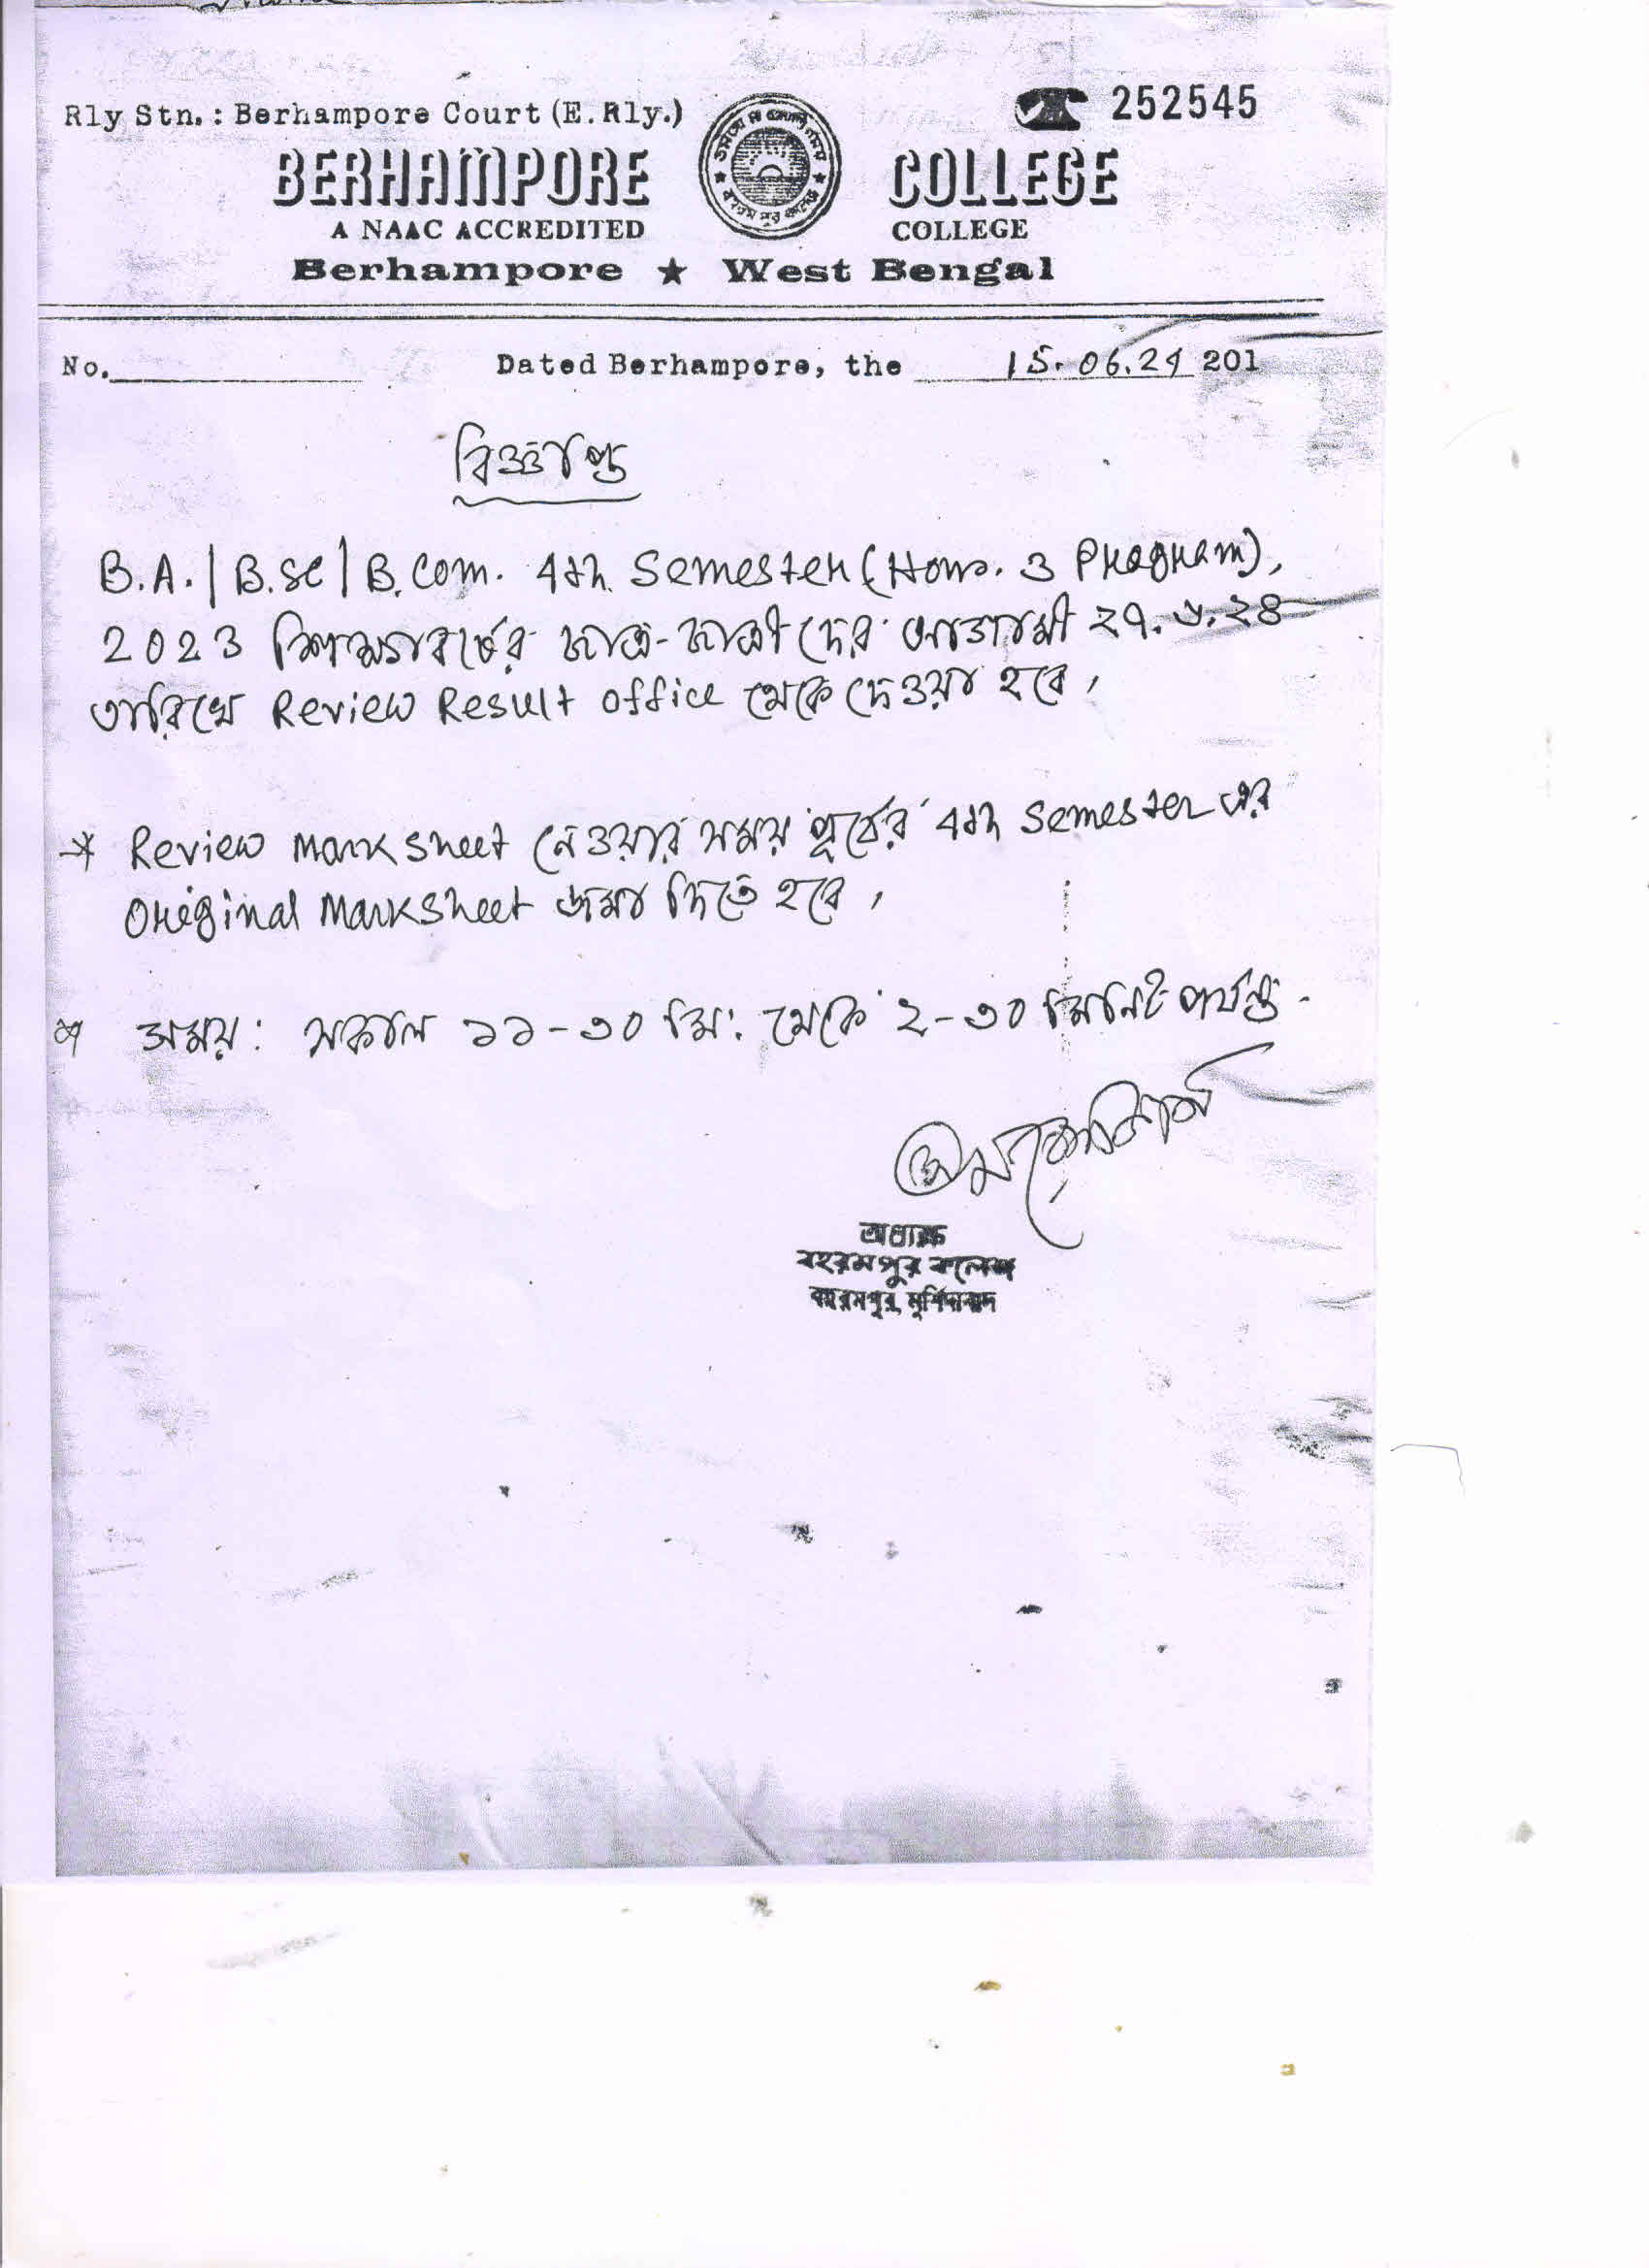 Rly Stn. : Berhampore Court (E. Rly.)
252545
BERHAMPORE COLLEGE
A NAAC ACCREDITED COLLEGE
বহরমপুর কলেজ
Berhampore ★ West Bengal
No. Dated Berhampore, the 15.06.24 201
বিজ্ঞপ্তি
B.A. | B.Sc | B.Com. 4th Semester (Hons. ও Program),
2023 শিক্ষাবর্ষের ছাত্র-ছাত্রী দের আগামী ২৭.৬.২৪
তারিখে Review Result office থেকে দেওয়া হবে।
* Review Mark sheet নেওয়ার সময় পূর্বের 4th Semester এর
Original Marksheet জমা দিতে হবে।
সময়: সকাল ১১-৩০ মি: থেকে ২-৩০ মিনিট পর্যন্ত.
অধ্যক্ষ
বহরমপুর কলেজ
বহরমপুর, মুর্শিদাবাদ